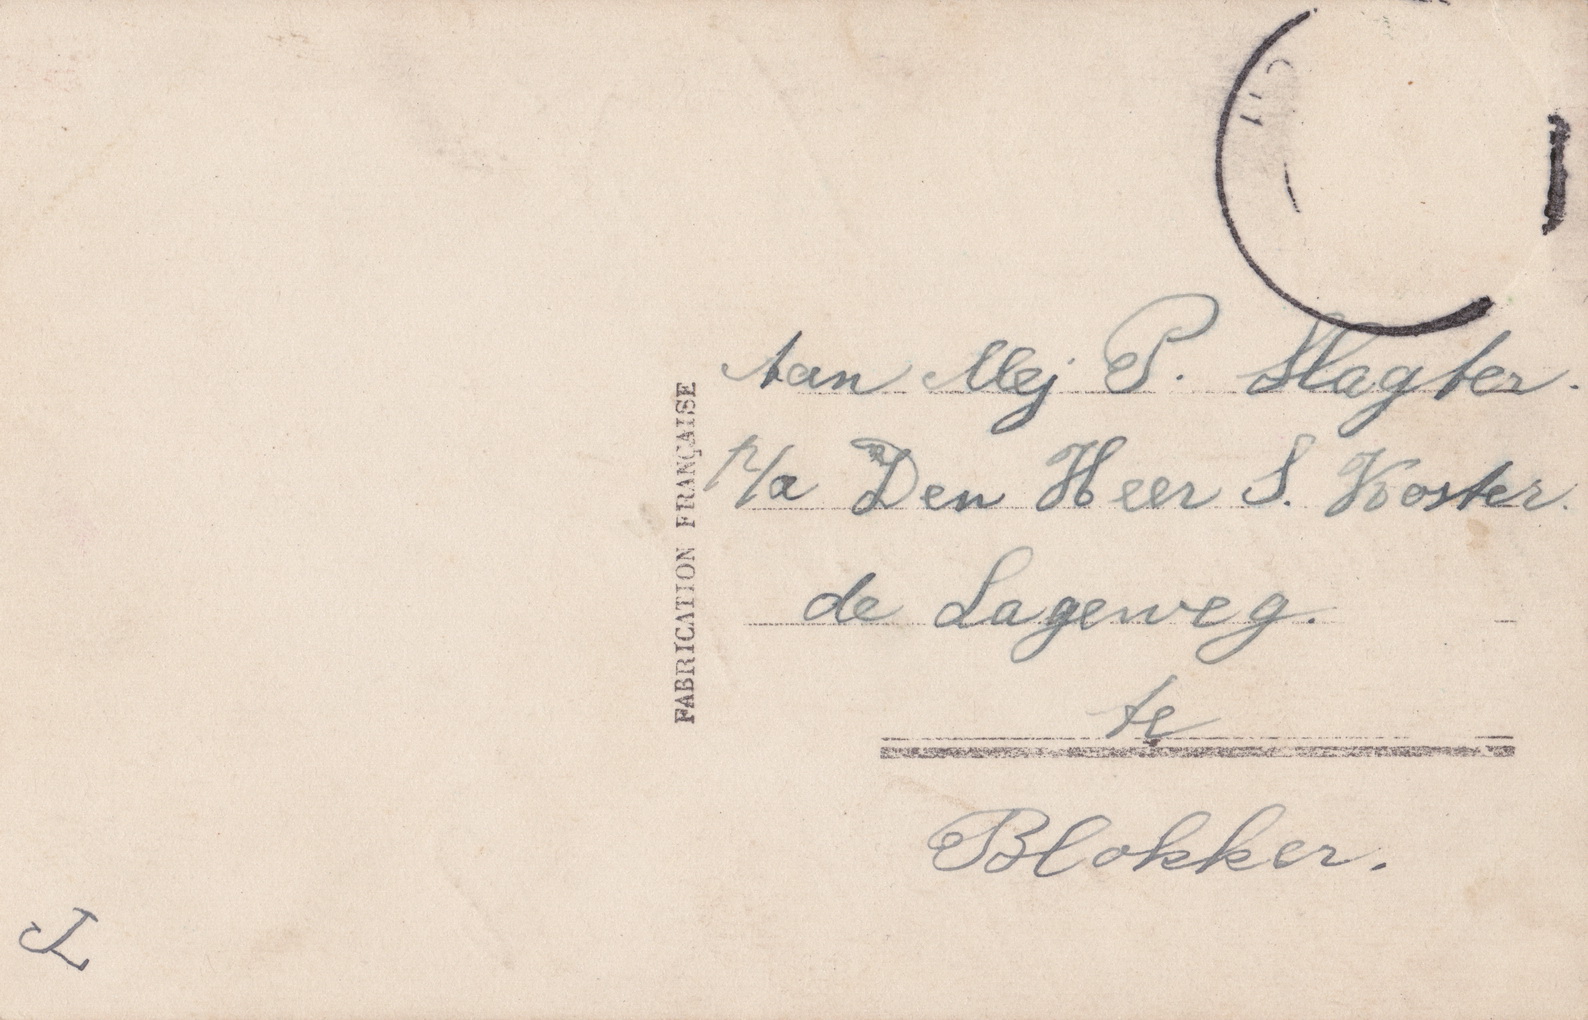 FABRICATION FRANÇAISE
Aan Mej P. Slagter.
p/a Den Heer S. Koster.
de Lageweg.
te
Blokker.